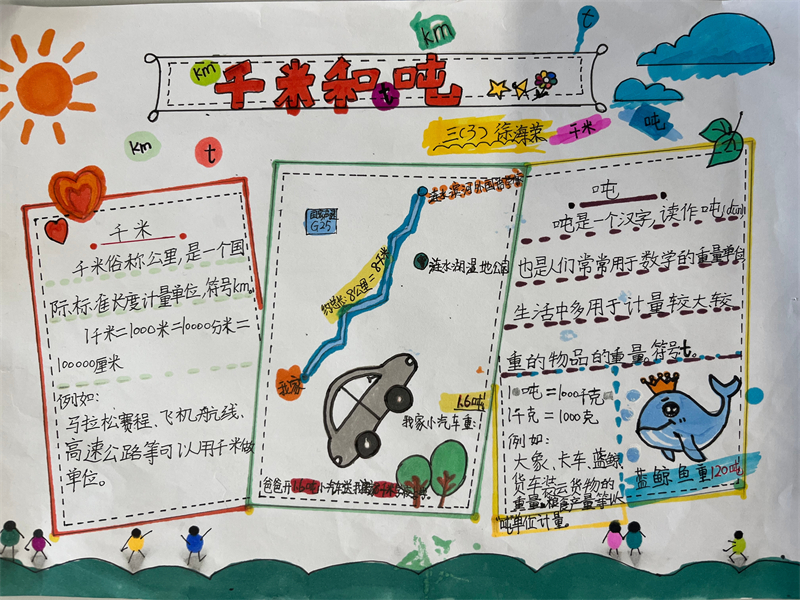 km
t
km
千米和吨
t
三(3) 徐海荣
千米
吨
km
t
千米
千米俗称公里,是一个国
际标准长度计量单位,符号km。
1千米=1000米=10000分米=
100000厘米
例如:
马拉松赛程、飞机航线、
高速公路等可以用千米做
单位。
G25
涟水滨河外国语学校
涟水湖湿地公园
约总长:8公里=8千米
我家
1.6吨
我家小汽车重:
爸爸开1.6吨小汽车送我
吨
吨是一个汉字,读作吨(dūn)
也是人们常常用于数学的重量单位
生活中多用于计量较大较
重的物品的重量。符号t。
1吨=1000千克
1千克=1000克
例如:
大象、卡车、蓝鲸
货车装云货物的
重量、粮食产量等以
吨单位计量。
蓝鲸鱼重120吨